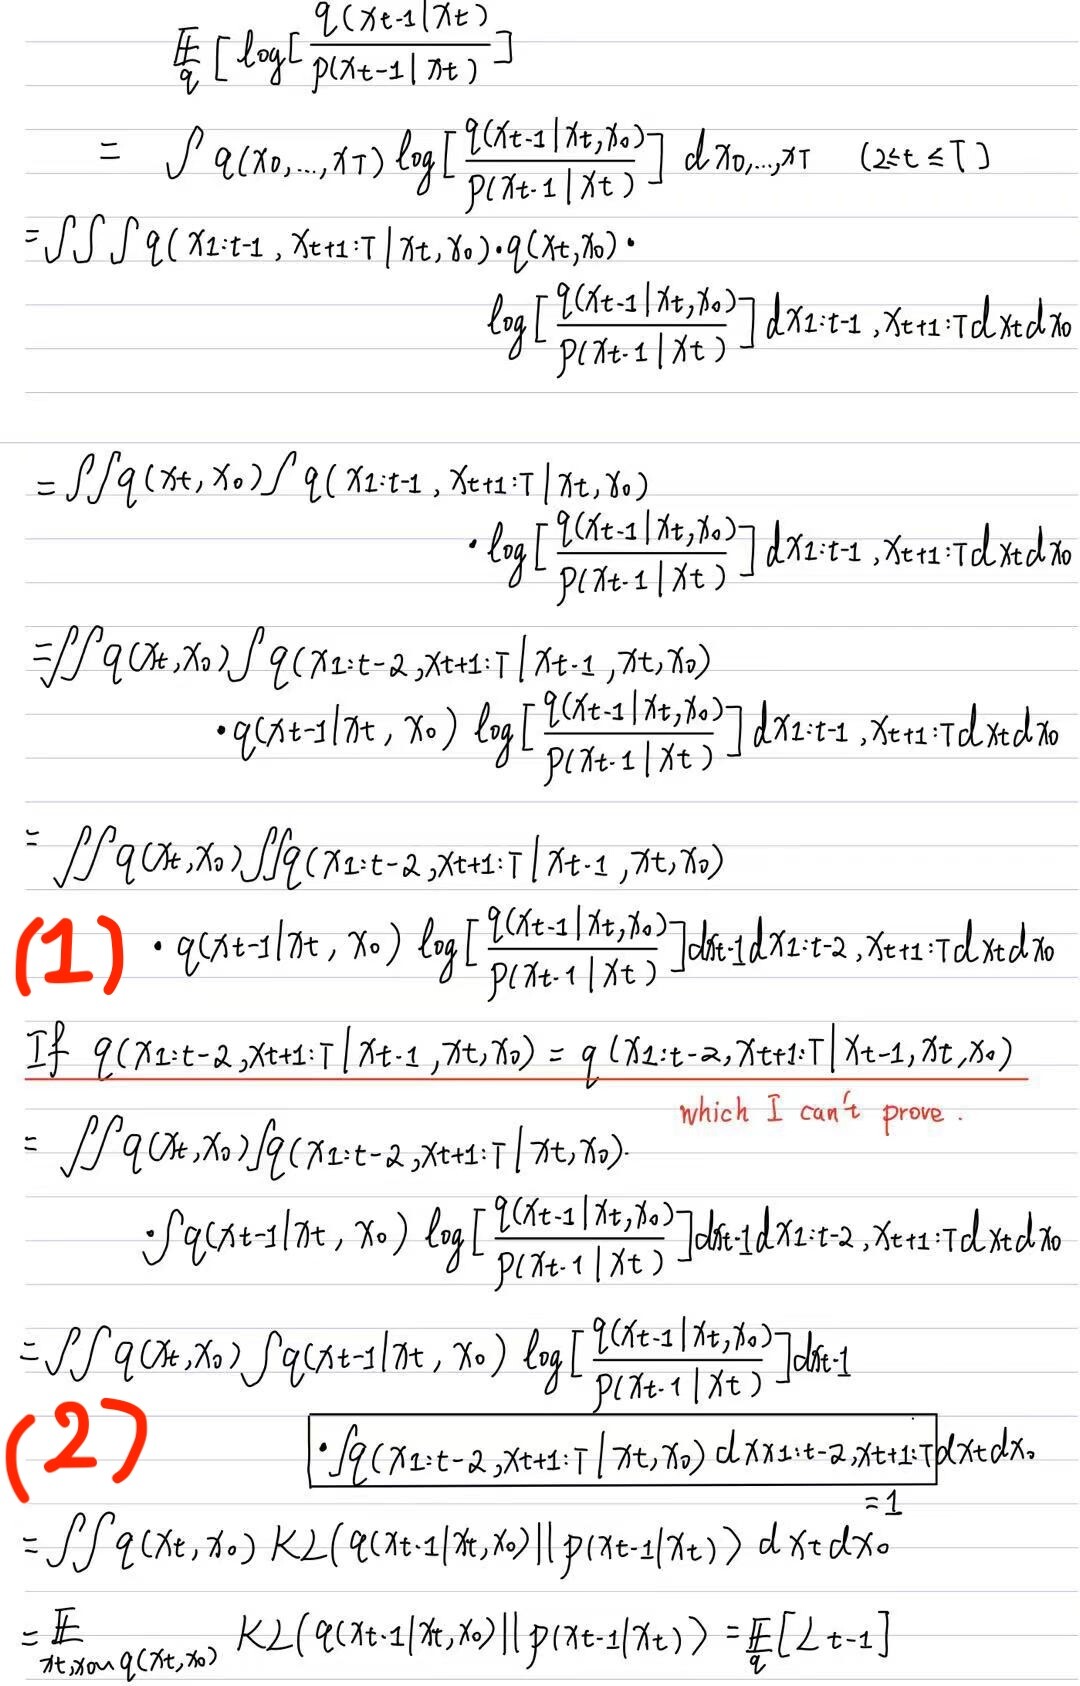 𝔼_q [log[q(xt-1|xt)/p(xt-1|xt)]]
= ∫ q(x0,...,xT) log[q(xt-1|xt,x0)/p(xt-1|xt)] dx0,...,xT (2≤t≤T)
=∫∫∫q(x1:t-1, xt+1:T|xt,x0)·q(xt,x0)·
log[q(xt-1|xt,x0)/p(xt-1|xt)] dx1:t-1,xt+1:T dxt dx0
=∫∫q(xt,x0)∫q(x1:t-1, xt+1:T|xt,x0)
·log[q(xt-1|xt,x0)/p(xt-1|xt)] dx1:t-1,xt+1:T dxt dx0
=∫∫q(xt,x0)∫q(x1:t-2,xt+1:T|xt-1,xt,x0)
·q(xt-1|xt, x0) log[q(xt-1|xt,x0)/p(xt-1|xt)] dx1:t-1,xt+1:T dxt dx0
= ∫∫q(xt,x0)∫∫q(x1:t-2,xt+1:T|xt-1,xt,x0)
(1) ·q(xt-1|xt, x0) log[q(xt-1|xt,x0)/p(xt-1|xt)]dxt-1dx1:t-2,xt+1:T dxt dx0
If q(x1:t-2,xt+1:T|xt-1,xt,x0) = q(x1:t-2,xt+1:T|xt-1,xt,x0)
which I can't prove.
= ∫∫q(xt,x0)∫q(x1:t-2,xt+1:T|xt,x0)·
·∫q(xt-1|xt, x0) log[q(xt-1|xt,x0)/p(xt-1|xt)]dxt-1dx1:t-2,xt+1:T dxt dx0
=∫∫q(xt,x0)∫q(xt-1|xt, x0) log[q(xt-1|xt,x0)/p(xt-1|xt)]dxt-1
(2) ·∫q(x1:t-2,xt+1:T|xt,x0) dxx1:t-2,xt+1:T dxt dx0
=1
=∫∫q(xt,x0) KL(q(xt-1|xt,x0)||p(xt-1|xt)) dxt dx0
=𝔼_xt,x0~q(xt,x0) KL(q(xt-1|xt,x0)||p(xt-1|xt)) =𝔼_q[Lt-1]